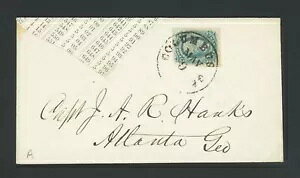 COLUMBUS
Capt J. A. R. Hanks
Atlanta
Geo